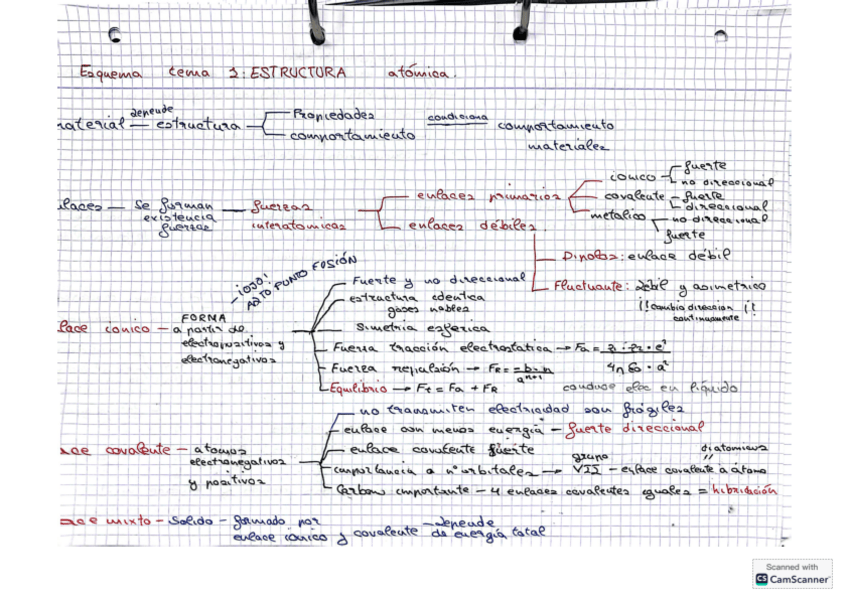 Esquema tema 2: ESTRUCTURA atómica.
material — depende estructura — Propiedades condiciona comportamiento
comportamiento materiales
enlaces — se forman existencia fuerzas — fuerzas interatomicas
enlaces primarios
ionico — fuerte
no direccional
covalente — fuerte
direccional
metalico — no direccional
fuerte
enlaces débiles
Dipolos: enlace débil
Fluctuante: débil y asimetrico
¡¡cambia direccion !!
continuamente
¡OJO!
ALTO PUNTO FUSIÓN
lace ionico — FORMA a partir de
electropositivos y
electronegativos
Fuerte y no direccional
estructura identica
gases nobles
Simetria esferica
Fuerza tracción electrostatica → Fa =
Fuerza repulsión → FR =
Equilibrio → Ft = Fa + FR conduce elec en líquido
ace covalente — atomos
electronegativos
y positivos
no transmiten electricidad son frágiles
enlace con menos energia — fuerte direccional
enlace covalente fuerte
importancia a nº orbitales → grupo VII — enlace covalente a átomo
diatomicos
Carbono importante — 4 enlaces covalentes iguales = hibridación
ace mixto — Solido — formado por
enlace iónico y covalente — depende
de energía total
Scanned with
CS CamScanner